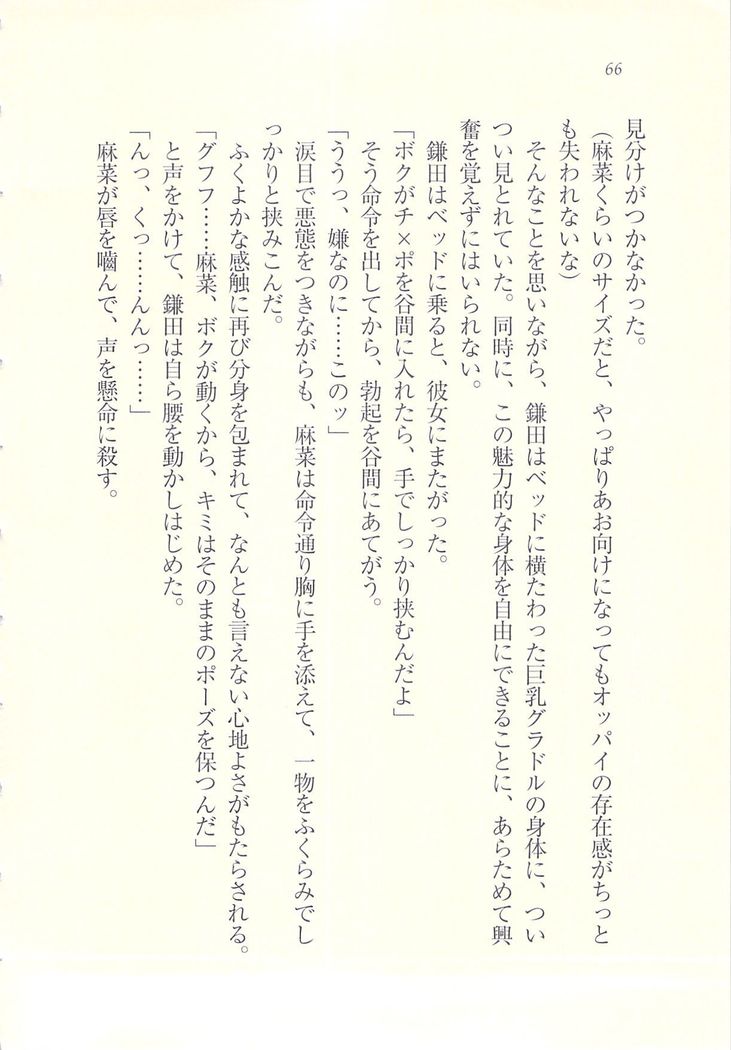 66
見分けがつかなかった。
（麻菜くらいのサイズだと、やっぱりあお向けになってもオッパイの存在感がちっと
も失われないな）
そんなことを思いながら、鎌田はベッドに横たわった巨乳グラドルの身体に、つい
つい見とれていた。同時に、この魅力的な身体を自由にできることに、あらためて興
奮を覚えずにはいられない。
鎌田はベッドに乗ると、彼女にまたがった。
「ボクがチ×ポを谷間に入れたら、手でしっかり挟むんだよ」
そう命令を出してから、勃起を谷間にあてがう。
「ううっ、嫌なのに……このッ」
涙目で悪態をつきながらも、麻菜は命令通り胸に手を添えて、一物をふくらみでし
っかりと挟みこんだ。
ふくよかな感触に再び分身を包まれて、なんとも言えない心地よさがもたらされる。
「グフフ……麻菜、ボクが動くから、キミはそのままのポーズを保つんだ」
と声をかけて、鎌田は自ら腰を動かしはじめた。
「んっ、くっ……んんっ……」
麻菜が唇を嚙んで、声を懸命に殺す。